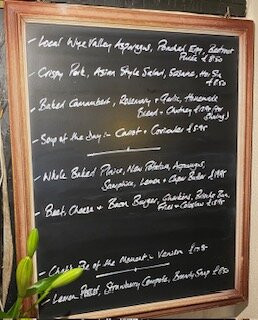 - Local Wye Valley Asparagus, Poached Egg, Beetroot
£8.50
- Crispy Pork, Asian Style Salad, Sesame,
£8.50
- Baked Camembert, Rosemary + Garlic, Homemade
Bread + Chutney (for
Sharing)
- Soup of the day:- Carrot + Coriander £5.95
- Whole Baked Plaice, New Potatoes, Asparagus,
Samphire, Lemon + Caper Butter
- Beef, Cheese + Bacon Burger, Gherkins, Brioche Bun,
Fries + Coleslaw
- Pie of the Moment:- Venison
- Lemon Posset, Strawberry Compote, Brandy Snap